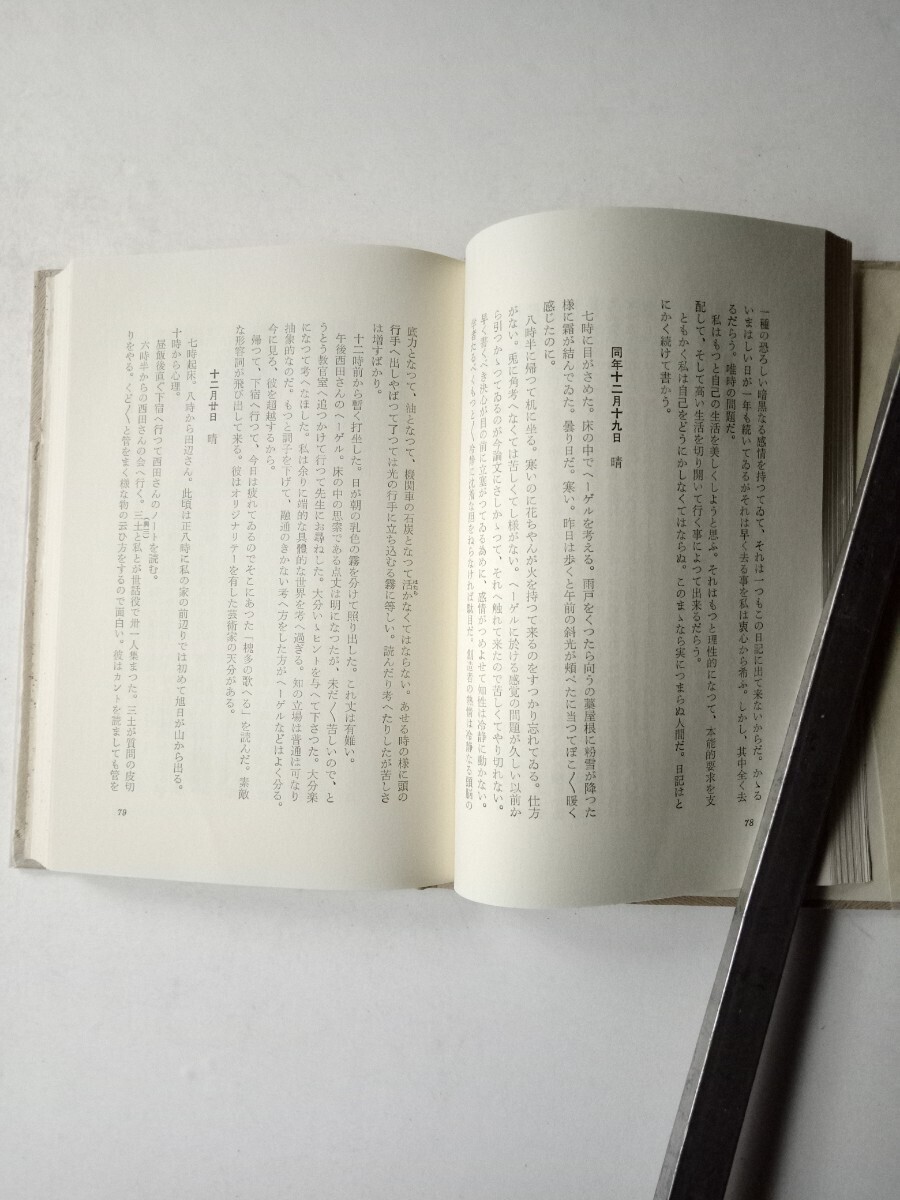 一種の恐ろしい暗黒なる感情を持つてゐて、それは一つもこの日記に出て来ないからだ。かゝる
いまはしい日が一年も続いてゐるがそれは早く去る事を私は衷心から希ふ。しかし、其中全く去
るだらう。唯時の問題だ。
私はもつと自己の生活を美しくしようと思ふ。それはもつと理性的になつて、本能的要求を支
配して、そして高い生活を切り開いて行く事によつて出来るだらう。
ともかく私は自己をどうにかしなくてはならぬ。このまゝなら実につまらぬ人間だ。日記はと
にかく続けて書かう。
同年十二月十九日 晴
七時に目がさめた。床の中でヘーゲルを考える。雨戸をくつたら向うの藁屋根に粉雪が降つた
様に霜が結んでゐた。曇り日だ。寒い。昨日は歩くと午前の斜光が頬ぺたに当つてぽこ〳〵暖く
感じたのに。
八時半に帰つて机に坐る。寒いのに花ちやんが火を持つて来るのをすつかり忘れてゐる。仕方
がない。兎に角考へなくては苦しくてし様がない。ヘーゲルに於ける感覚の問題が久しい以前か
ら引つかゝつてゐるのが今論文にさしかゝつて、それへ触れて来たので苦しくてやり切れない。
早く書くべき決心が目の前に立塞がつてゐる為めに、感情がつめよせて知性は冷静に動かない。
78
底力となつて、油となつて、機関車の石炭となつて活かなくてはならない。あせる時の様に頭の
行手へ出しやばつて了つては光の行手に立ち込むる霧に等しい。読んだり考へたりしたが苦しさ
は増すばかり。
十二時前から暫く打坐した。日が朝の乳色の霧を分けて照り出した。これ丈は有難い。
午後西田さんのヘーゲル。床の中の思索である点丈は明になつたが、未だ〳〵苦しいので、と
うとう教官室へ追つかけて行つて先生にお尋ねした。大分いゝヒントを与へて下さつた。大分楽
になつて考へなほした。私は余りに端的な具体的な世界を考へ過ぎる。知の立場は普通は可なり
抽象的なのだ。もつと調子を下げて、融通のきかない考へ方をした方がヘーゲルなどはよく分る。
今に見ろ、彼を超越するから。
帰つて、下宿へ行つて、今日は疲れてゐるのでそこにあつた「槐多の歌へる」を読んだ。素敵
な形容詞が飛び出して来る。彼はオリジナリテーを有した芸術家の天分がある。
十二月廿日 晴
七時起床、八時から田辺さん。此頃は正八時に私の家の前辺りでは初めて旭日が山から出る。
十時から心理。
昼飯後直ぐ下宿へ行つて西田さんのノートを読む。
六時半からの西田さんの会へ行く。三土と私とが世話役で卅一人集まつた。三土が質問の皮切
りをやる。くど〳〵と管をまく様な物の云ひ方をするので面白い。彼はカントを読ましても管を
79